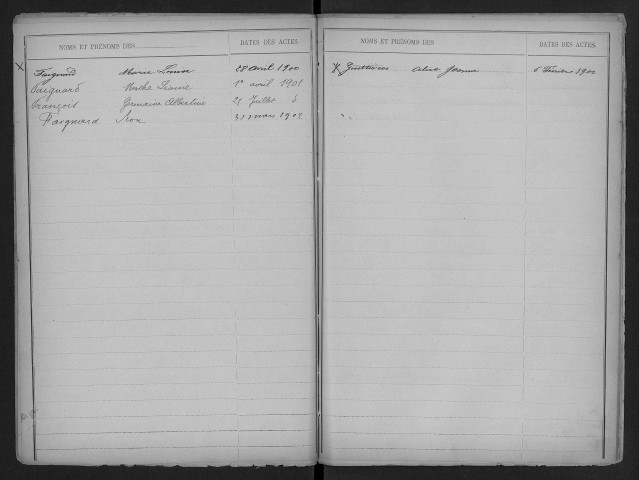 NOMS ET PRÉNOMS DES
DATES DES ACTES
Faignard Marie Louise 28 avril 1900
Faignard Berthe 1er avril 1901
François Germaine Albertine 25 Juillet
Faignard Léon 31 mars 1902
NOMS ET PRÉNOMS DES
DATES DES ACTES
6 Février 1900